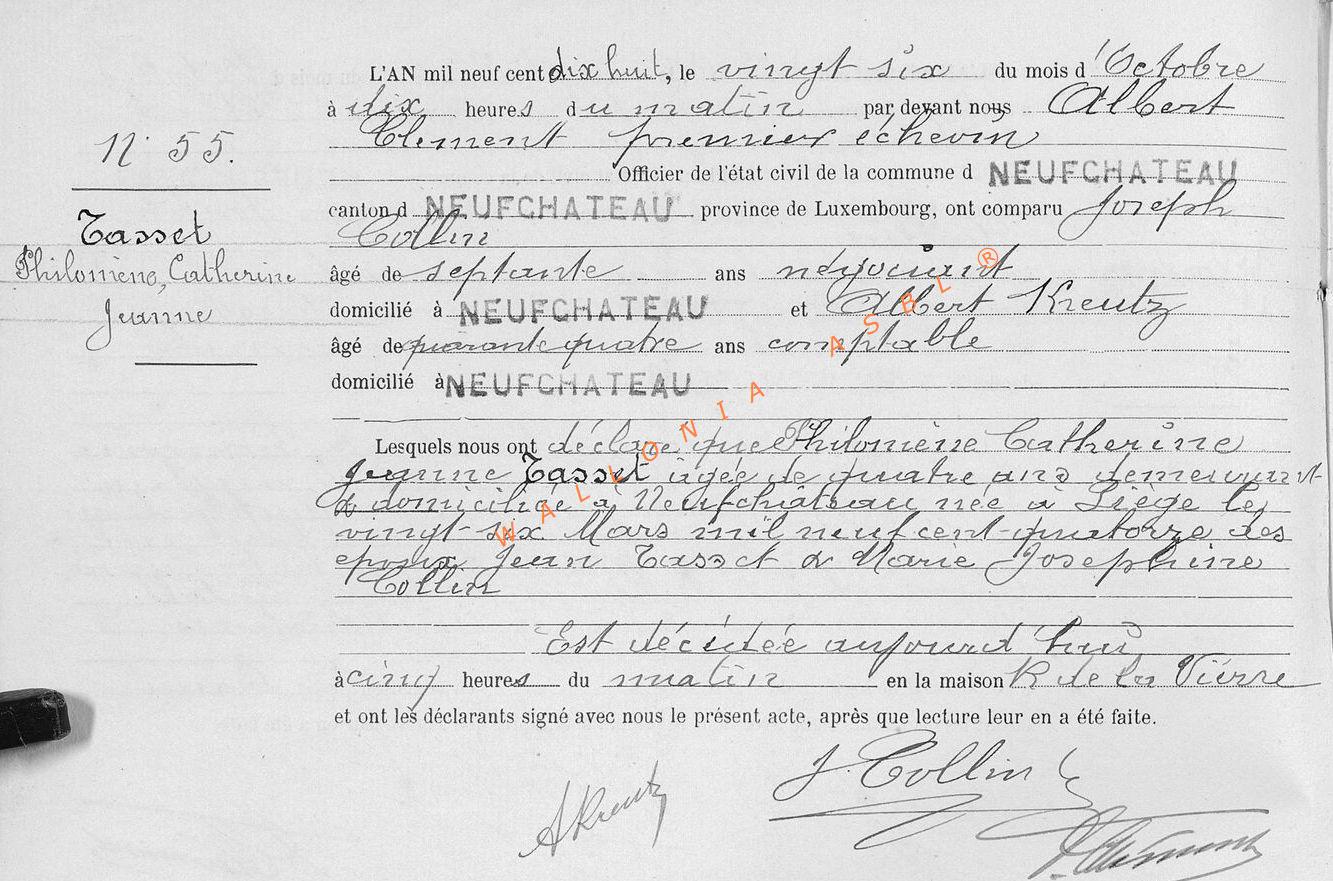 N° 55.
Tasset
Philomène, Catherine
Jeanne
L'AN mil neuf cent dix huit, le vingt six du mois d'Octobre
à dix heures du matin par devant nous Albert
Clement premier échevin
Officier de l'état civil de la commune d NEUFCHATEAU
canton d NEUFCHATEAU province de Luxembourg, ont comparu Joseph
Collin
âgé de septante ans négociant
domicilié à NEUFCHATEAU et Albert Kreutz
âgé de quarante quatre ans comptable
domicilié à NEUFCHATEAU
Lesquels nous ont déclaré que Philomène Catherine
Jeanne Tasset agée de quatre ans demeurant
& domiciliée à Neufchâteau née à Liège le
vingt-six Mars mil neuf cent-quatorze des
epoux Jean Tasset & Marie Josephine
Collin
Est décédée aujourd'hui
à cinq heures du matin en la maison R de la Vierre
et ont les déclarants signé avec nous le présent acte, après que lecture leur en a été faite.
J. Collin
A Kreutz
WALLONIA ASBL ®